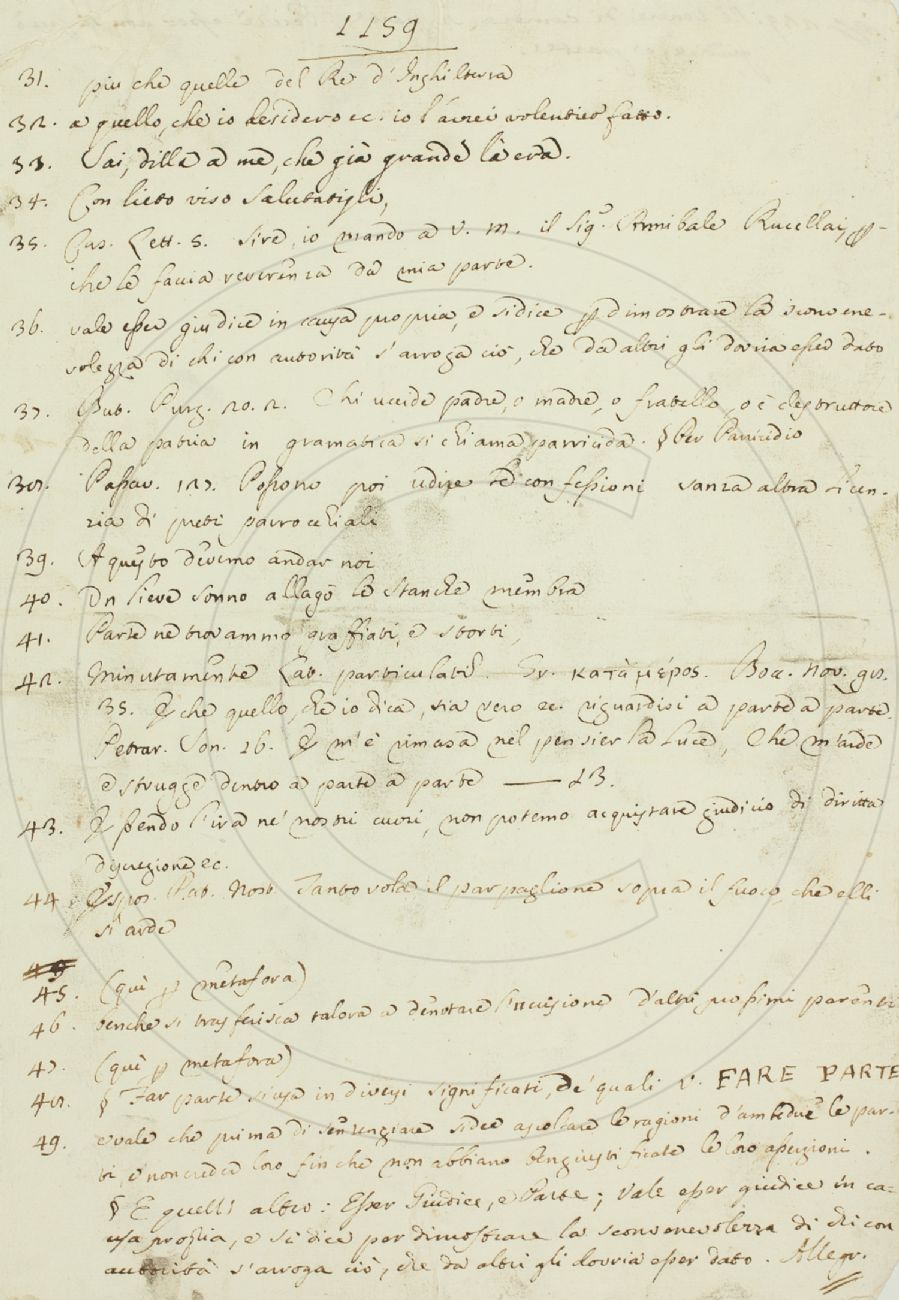 1159
31. piu che quelle del Re d'Inghilterra
32. a quello, che io desidero ec. io l'avrei volentier fatto.
33. Sai, dille a me, che già grande là era.
34. Con lieto viso salutatigli,
35. Cas. Lett. 5. sire, io mando a V. M. il Sig.r Annibale Rucellai, p-
che le facia reverenza da mia parte.
36. vale esser giudice in causa propria, e si dice p dimostrare la sconvene-
volezza di chi con autorità s'arroga ciò, che da altri gli dovria esser dato
37. But. Purg. 20. 2. Chi uccide padre, o madre, o fratello, o è destruttore
della patria in gramatica si chiama parricida. § Per Parricidio
38. Passav. 127. Possono poi udire le confessioni sanza altra licen-
zia di preti parrocchiali
39. A questo devemo andar noi
40. Un lieve sonno allagò le stanche membra
41. Parte ne trovammo graffiati, e storti,
42. Minutamente Lat. particulatim. Gr. κατὰ μέρος. Bocc. Nov. 98.
35. E che quello, che io dica, sia vero ec. riguardisi a parte a parte.
Petrar. Son. 16. E m'è rimasa nel pensier la luce, Che m'arde
e strugge dentro a parte a parte —— 23.
43. Essendo l'ira ne' nostri cuori, non potemo acquistare giudicio di diritta
discrezione ec.
44 Espos. Pat. Nost. Tanto vola il parpaglione sopra il fuoco, che elli
si arde
45. (quì p metafora)
46. benche si trasferisca talora a denotare l'uccisione d'altri prossimi parenti
47. (quì p metafora)
48. § Far parte si usa in diversi significati, de' quali v. FARE PARTE
49. e vale che prima di sentenziare si dee ascoltare le ragioni d'ambedue le par-
ti, e non creder loro fin che non abbiano ben giustificate le loro asserzioni.
§ E quell'altro: Esser Giudice, e Parte; Vale esser giudice in ca-
usa propria, e si dice per dimostrare la sconvenevolezza di chi con
autorità s'arroga ciò, che da altri gli dovria esser dato. Allegr.